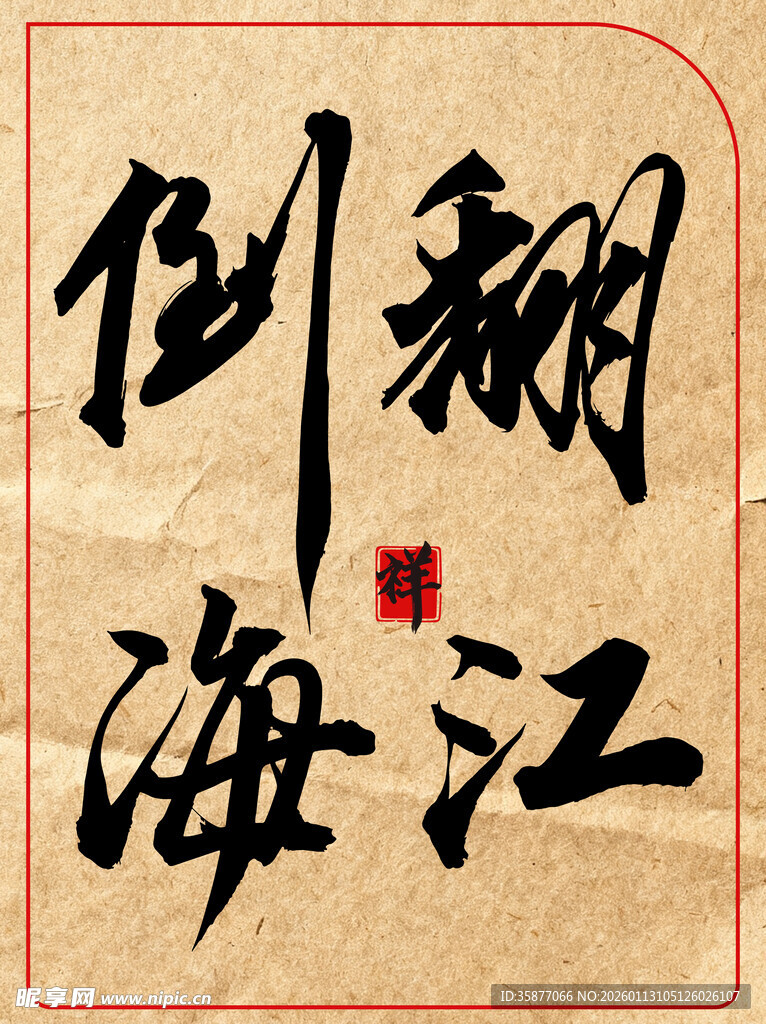 翻江
倒海
祥
昵享网 www.nipic.cn
ID:35877066 NO:20260113105126026107